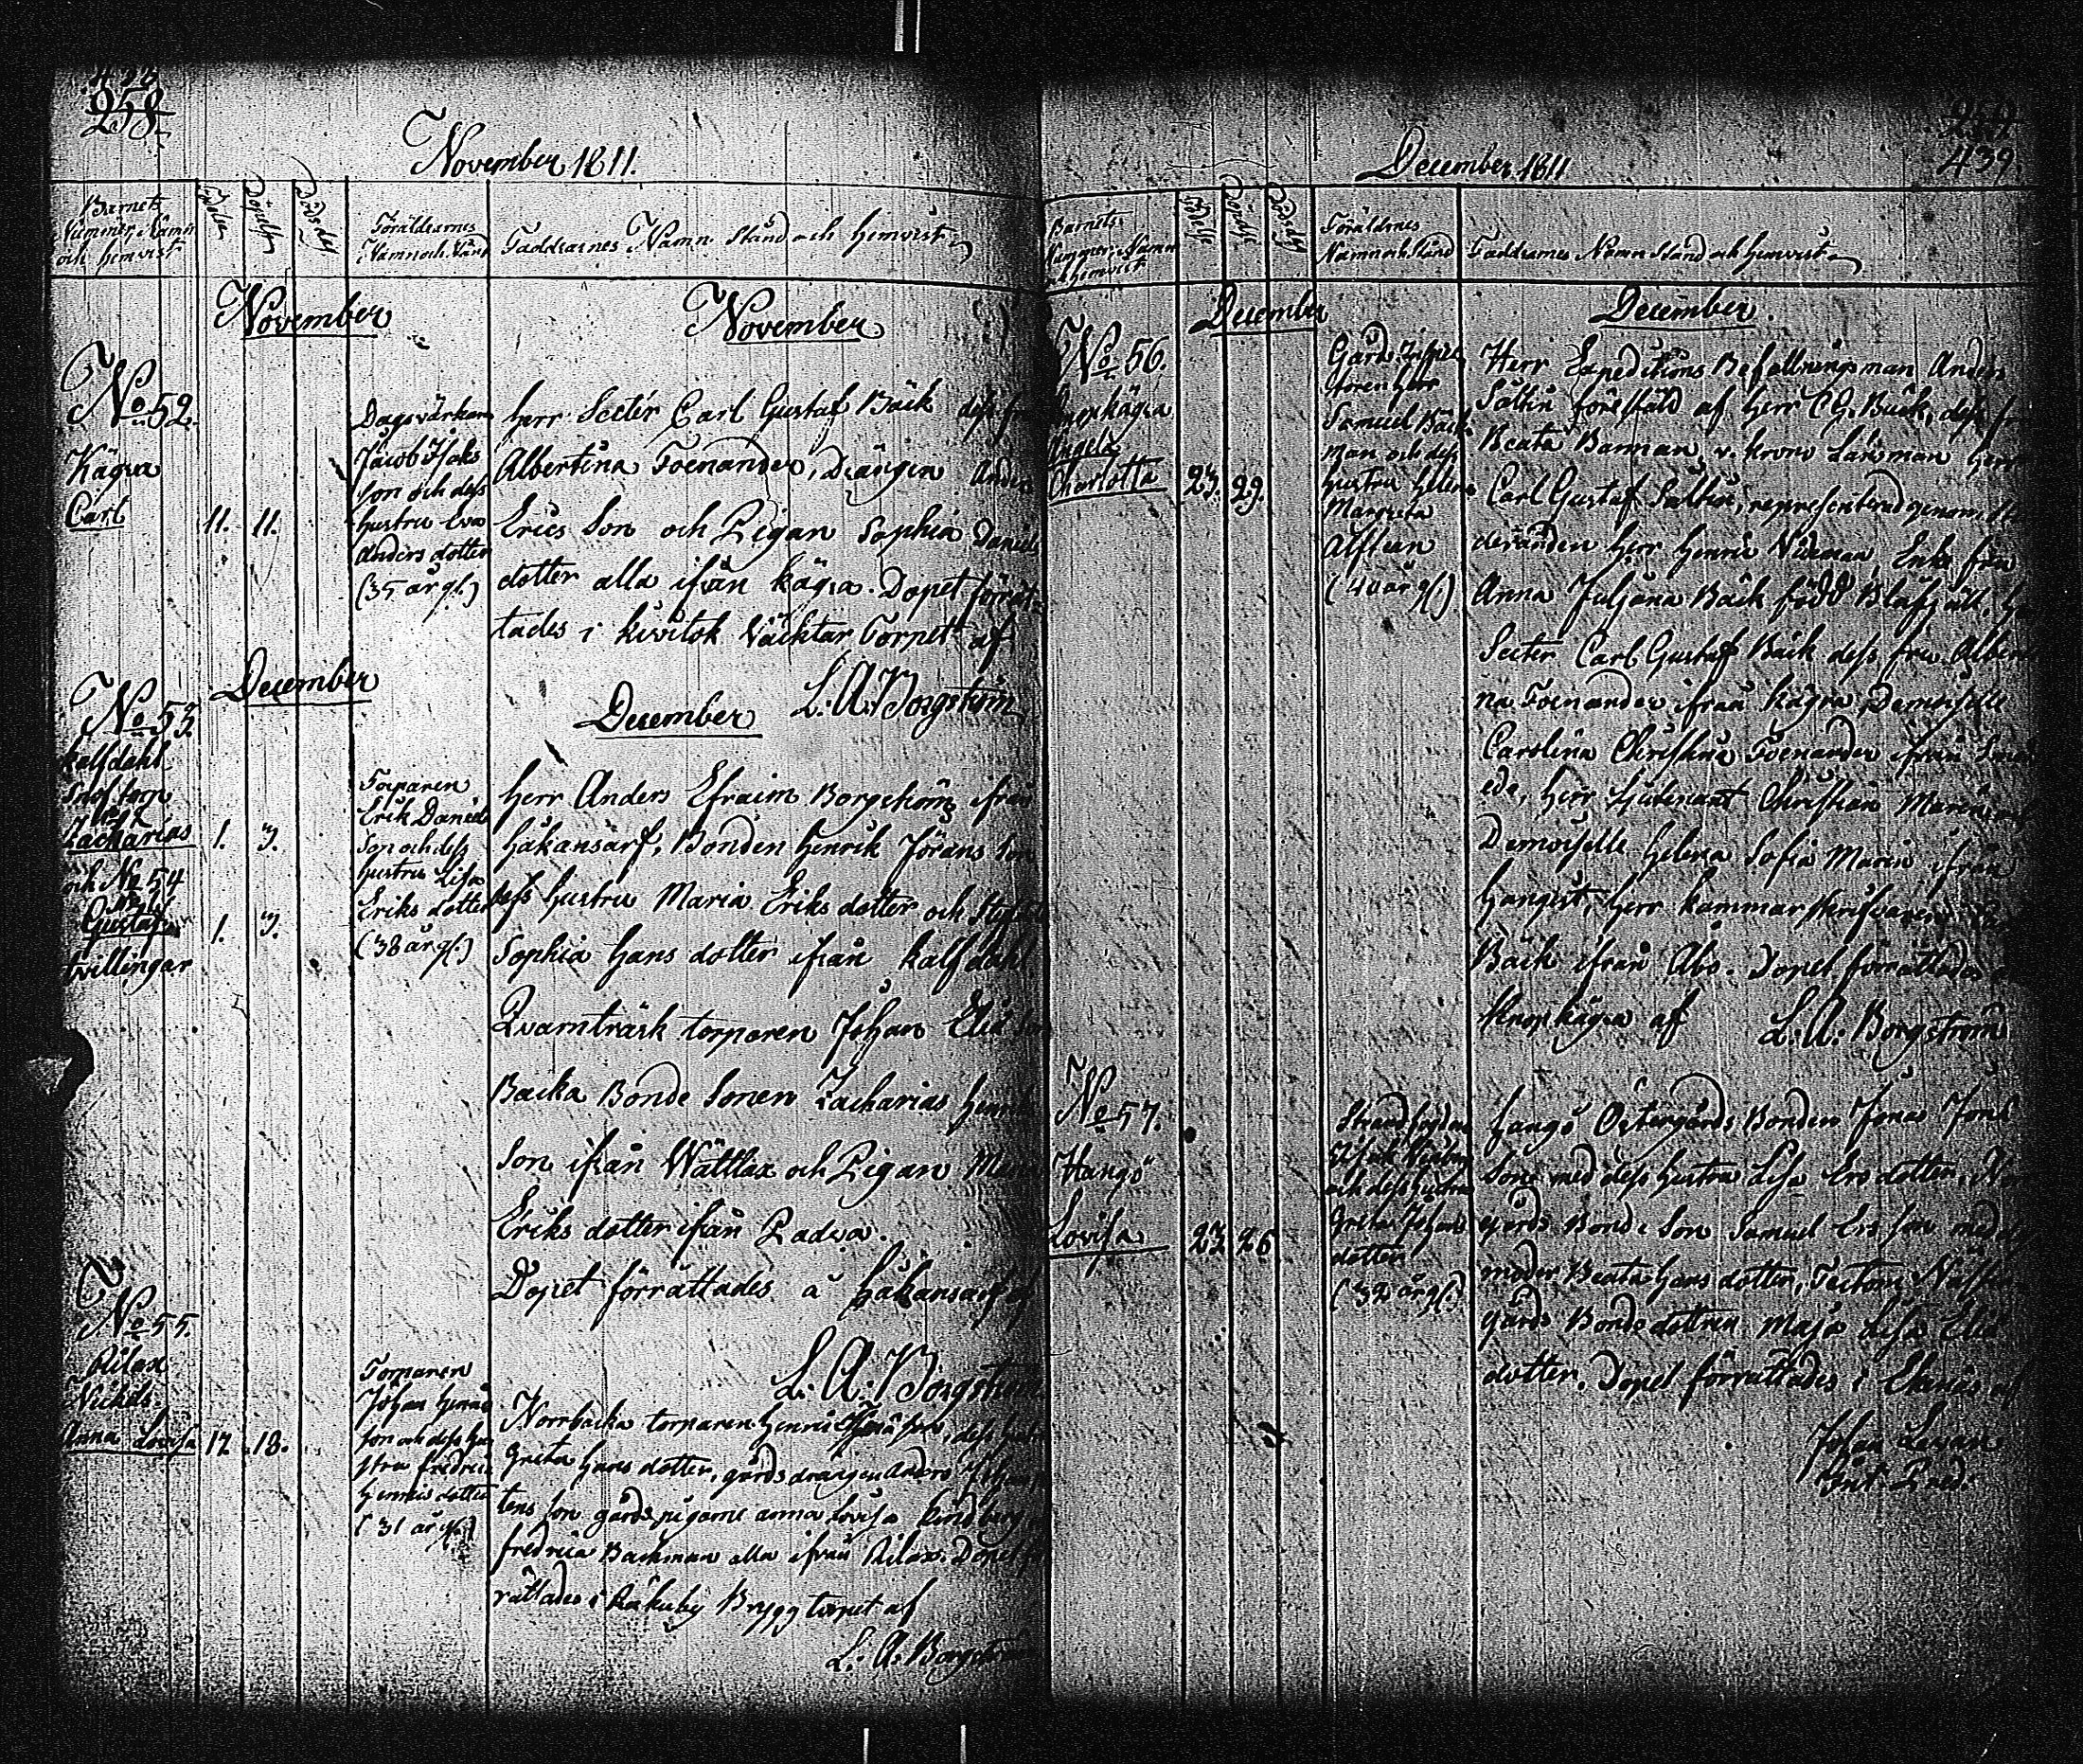 258
November 1811.
Barnets
Nummer, Namn
och hemvist
Födelse
Döpelse
Dödsdag
Föräldrarnes
Namn och Stånd
Faddrarnes Namn Stånd och hemvist
November
November
No 52.
Kägra
Carl
11. 11.
Dagsvärkaren
Jacob Isaks
son och dess
hustru Eva
Anders dotter
(35 år gl.)
herr Secter Carl Gustaf Bäck dess fru
Albertina Foenander, Drängen Anders
Erics Son och Pigan Sophia Daniels
dotter alla ifrån Kägra. Dopet förrät-
tades i Kuvitok Väcktar Torpet af
L. A. Borgström
December
December
No 53.
Kalfdahl
torp
Zacharias
1. 3.
och No 54
Gustaf
1. 3.
tvillingar
Torparen
Erik Daniels
Son och dess
hustru Lisa
Eriks dotter
(38 år gl.)
herr Anders Efraim Borgström ifrån
Håkansarf, Bonden Henrik Jörans Son
dess hustru Maria Eriks dotter och
Sophia Hans dotter ifrån Kalfdahl
Qvarnträsk torparen Johan Elis Son
Backa Bonde Sonen Zacharias Henriks
Son ifrån Wättlax och Pigan
Eriks dotter ifrån Padva.
Dopet förrättades å Håkansarf af
L. A. Borgström
No 55.
Rilax
Anna Lovisa
17 18.
Torparen
Johan Henrics
son och dess hu
stru Fredrica
Henrics dotter
(31 år gl.)
Norrbacka torparen Henric, dess hust
Greta Hans dotter, gårds drängen Anders
tens son gårds pigorne Anna Lovisa Lindberg
Fredrica Backman alla ifrån Rilax. Dopet för
rättades i Råkuby Brygg torpet af
L. A. Borgström
259
439.
December 1811
Barnets
Nummer, Namn
och hemvist
Födelse
Döpelse
Dödsdag
Föräldrarnes
Namn och Stånd
Faddrarnes Namn Stånd och hemvist
December
December.
No 56.
Knopkägra
Angela
Charlotta
23. 29.
Gårds Inspec
toren herr
Samuel Bäck
man och dess
hustru Helena
Margreta
Alftun
(40 år gl.)
Herr Expeditions Befallningsman Anders
Sallin föreställd af herr C. G. Bäck, dess fru
Beata Barman, v. krono Länsman herr
Carl Gustaf Sallin, representerad genom
deranden herr Henric Widman, Enke fru
Anna Juljana Bäck född Blåfjäll,
Secter Carl Gustaf Bäck dess fru Alberti
na Foenander ifrån Kägra Demoiselle
Carolina Christina Foenander ifrån
ede, herr Lieutenant Christian Marin och
Demoiselle Helena Sofia Marin ifrån
Hangist, herr Kammar Skrifvaren
Bäck ifrån Åbo. Dopet förrättades å
Knopkägra af L. A. Borgström
No 57.
Hangö
Lovisa
23 26
Strandfogden
och dess hustru
Greta Johans
dotter
(32 år gl.)
Hangö Östergårds Bonden Jonas Jons
Son med dess hustru Lisa Ers dotter,
gårds Bonde Son Samuel Ers son med dess
moder Beata Hans dotter,
gårds Bonde dottren Maja Lisa Elis
dotter. Dopet förrättades i Ekenäs af
Johan